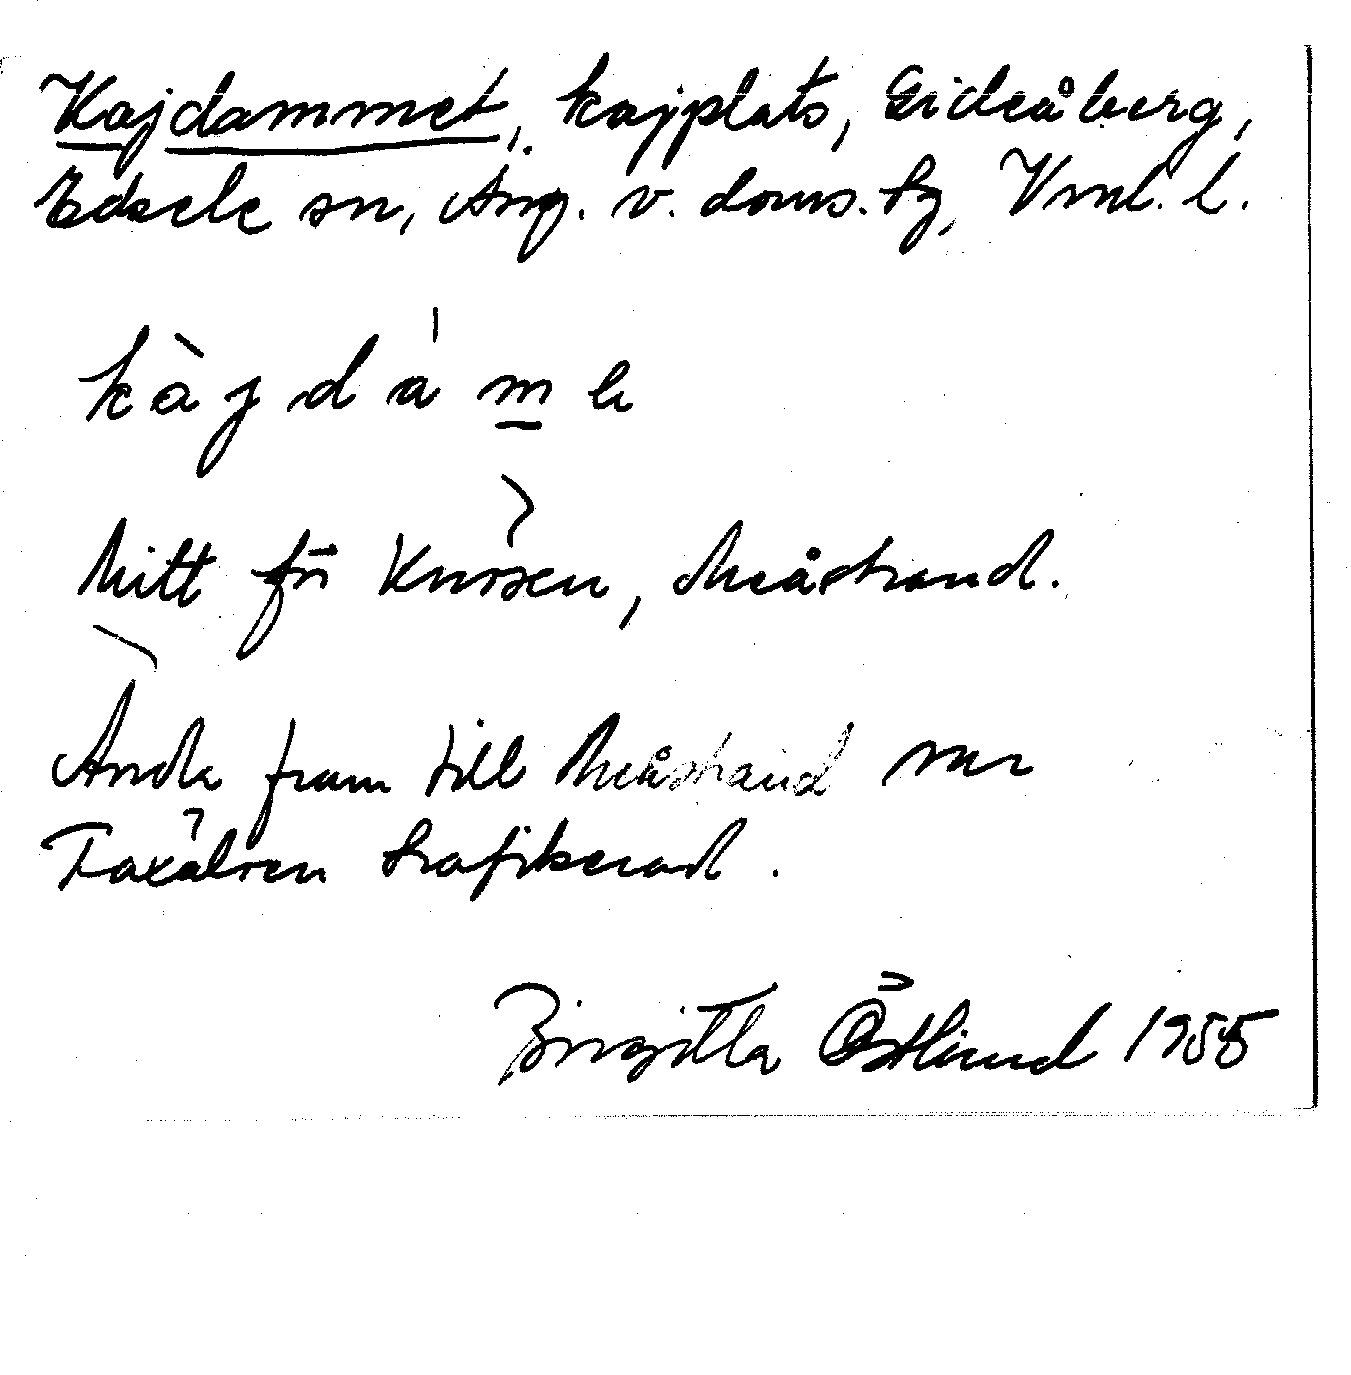 Kajdammet, kajplats, Eideåberg,
Edsele sn, Ång. v. doms. fg, Vrnl. l.
kàjdám̲e
Mitt för Knösen, Meåstrand.
Ända fram till Meåstrand var
Faxälven trafikerad.
Birgitta Östlund 1955